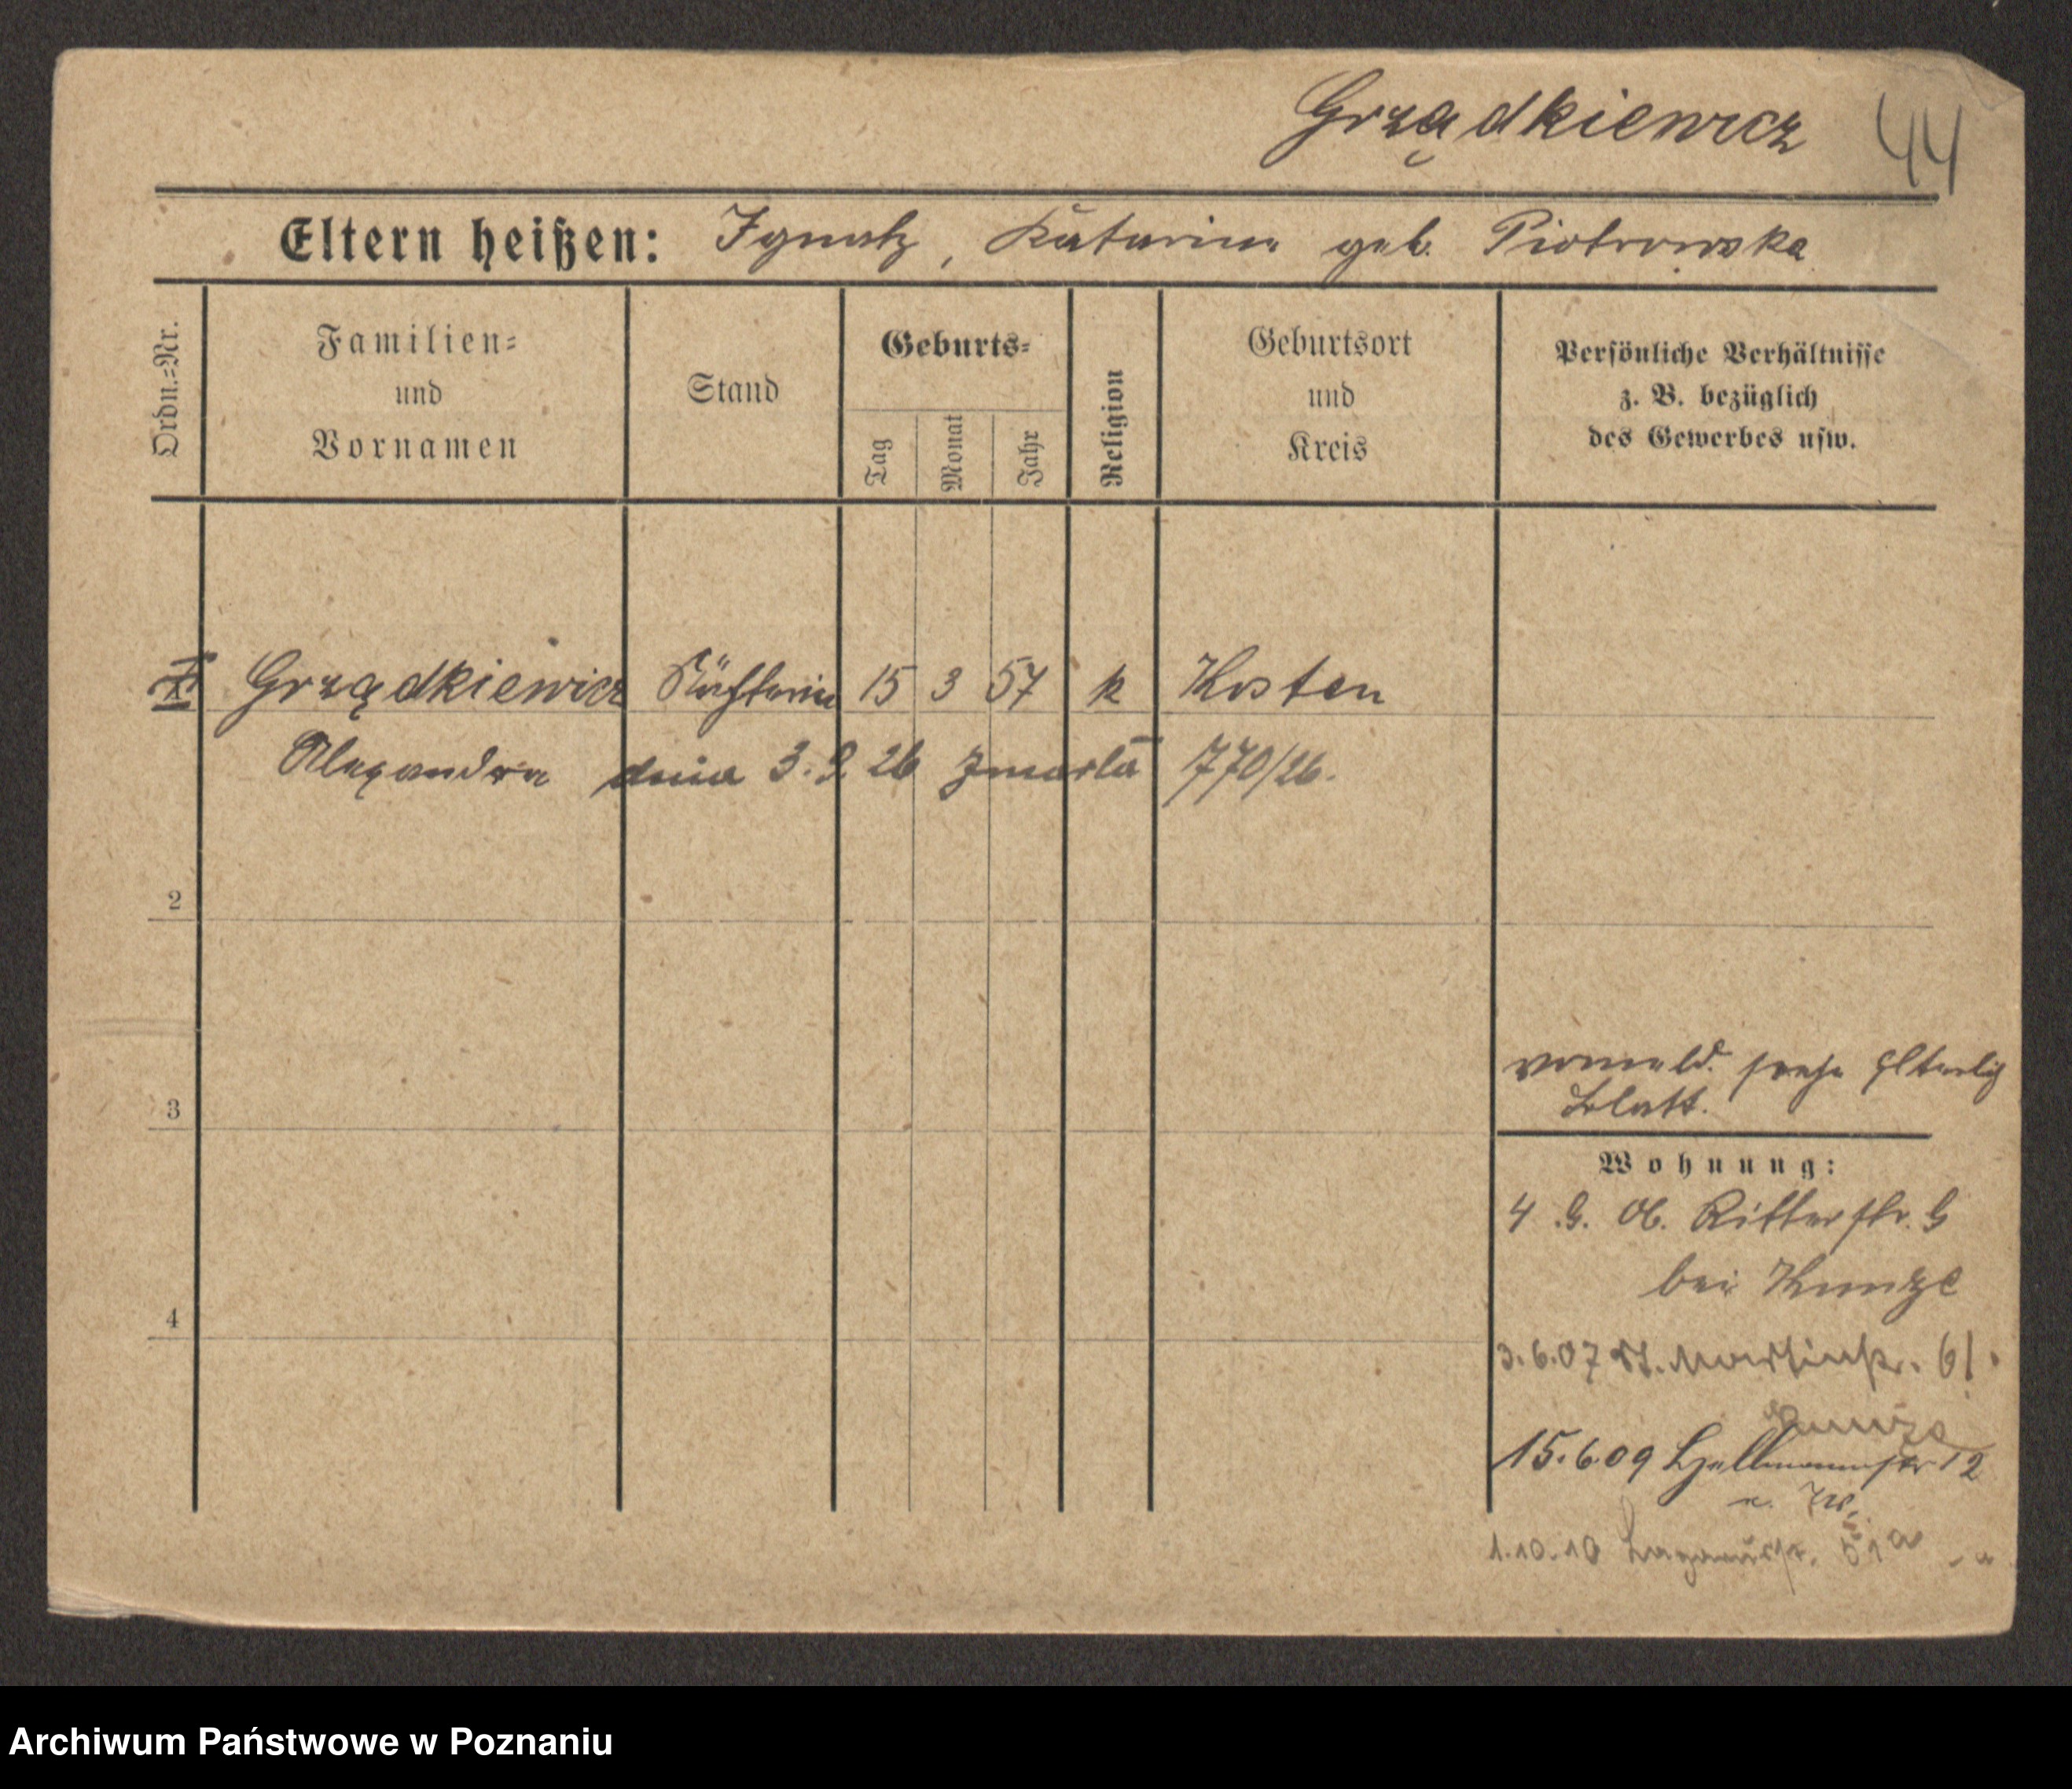 Grządkiewicz 44
Eltern heißen: Ignatz, Katarina geb. Piotrowska
Ordn.=Nr.
Familien=
und
Vornamen
Stand
Geburts=
Tag
Monat
Jahr
Religion
Geburtsort
und
Kreis
Persönliche Verhältnisse
z. B. bezüglich
des Gewerbes usw.
Grządkiewicz 15 3 57 k Kosten
Alexandra dnia 3. 9. 26 zmarła 770/26.
2
3
siehe elterlich
Blatt.
Wohnung:
4. 9. 06. Ritterstr. 9
bei Kunze
4
3.6.07 St. Martinstr. 61
Kunze
15.6.09 12
1.10.10
Archiwum Państwowe w Poznaniu